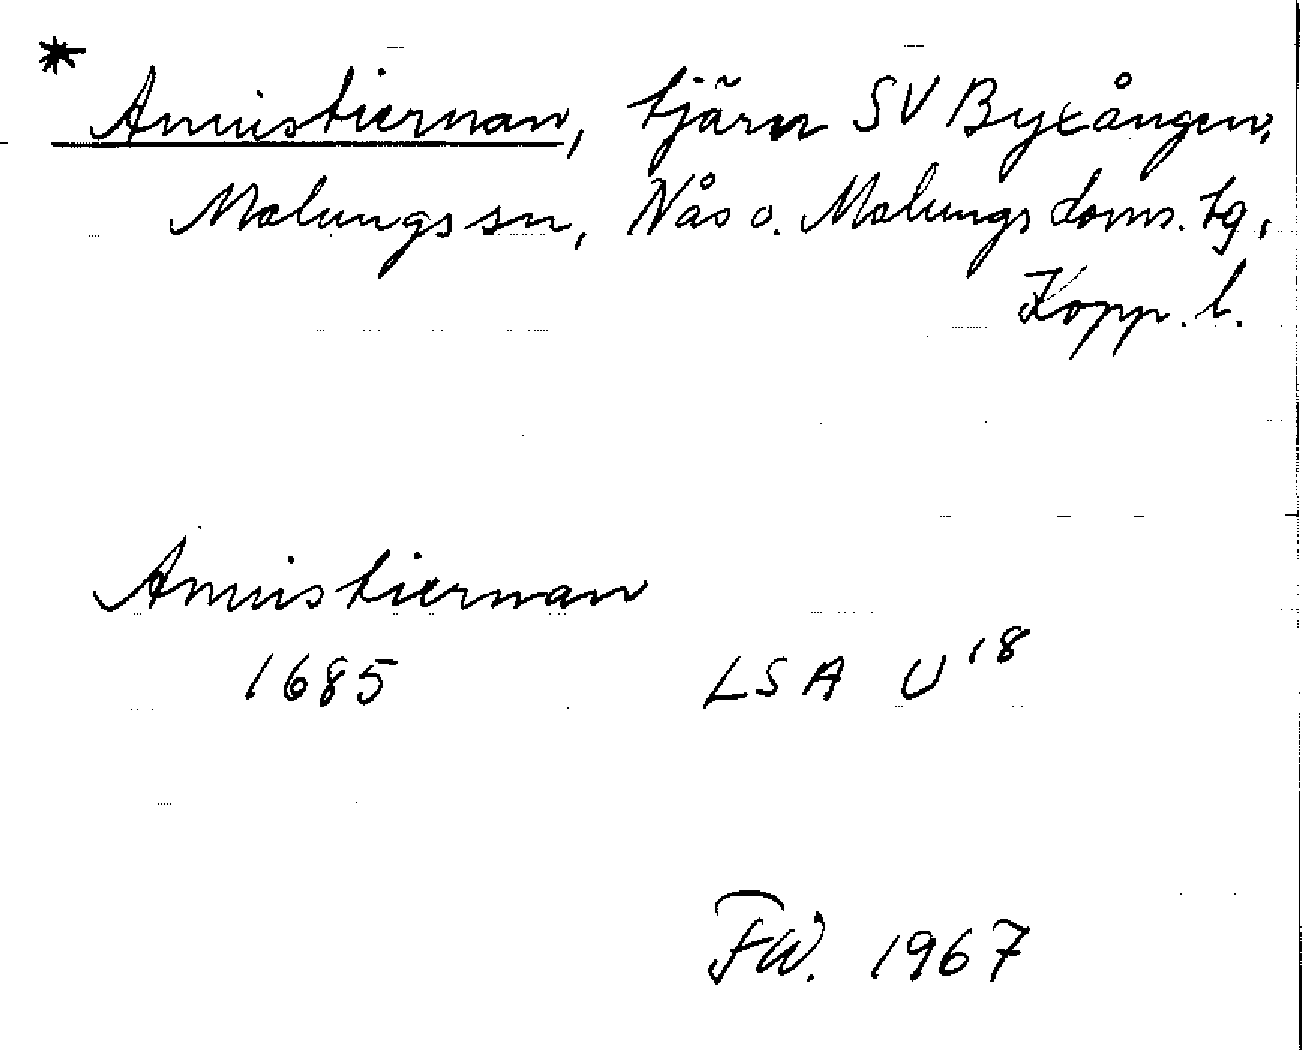 * Amuistiernan, tjärn SV Byxången,
Malungs sn, Nås o. Malungs doms. tg,
Kopp. l.
Amuistiernan
1685 LSA U18
FW. 1967